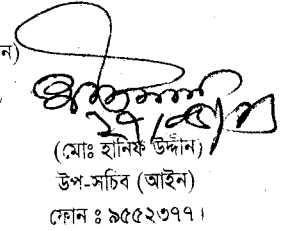 ন)
(মোঃ হানিফ উদ্দীন)
উপ-সচিব (আইন)
ফোন ঃ ৯৫৫২৩৭৭।